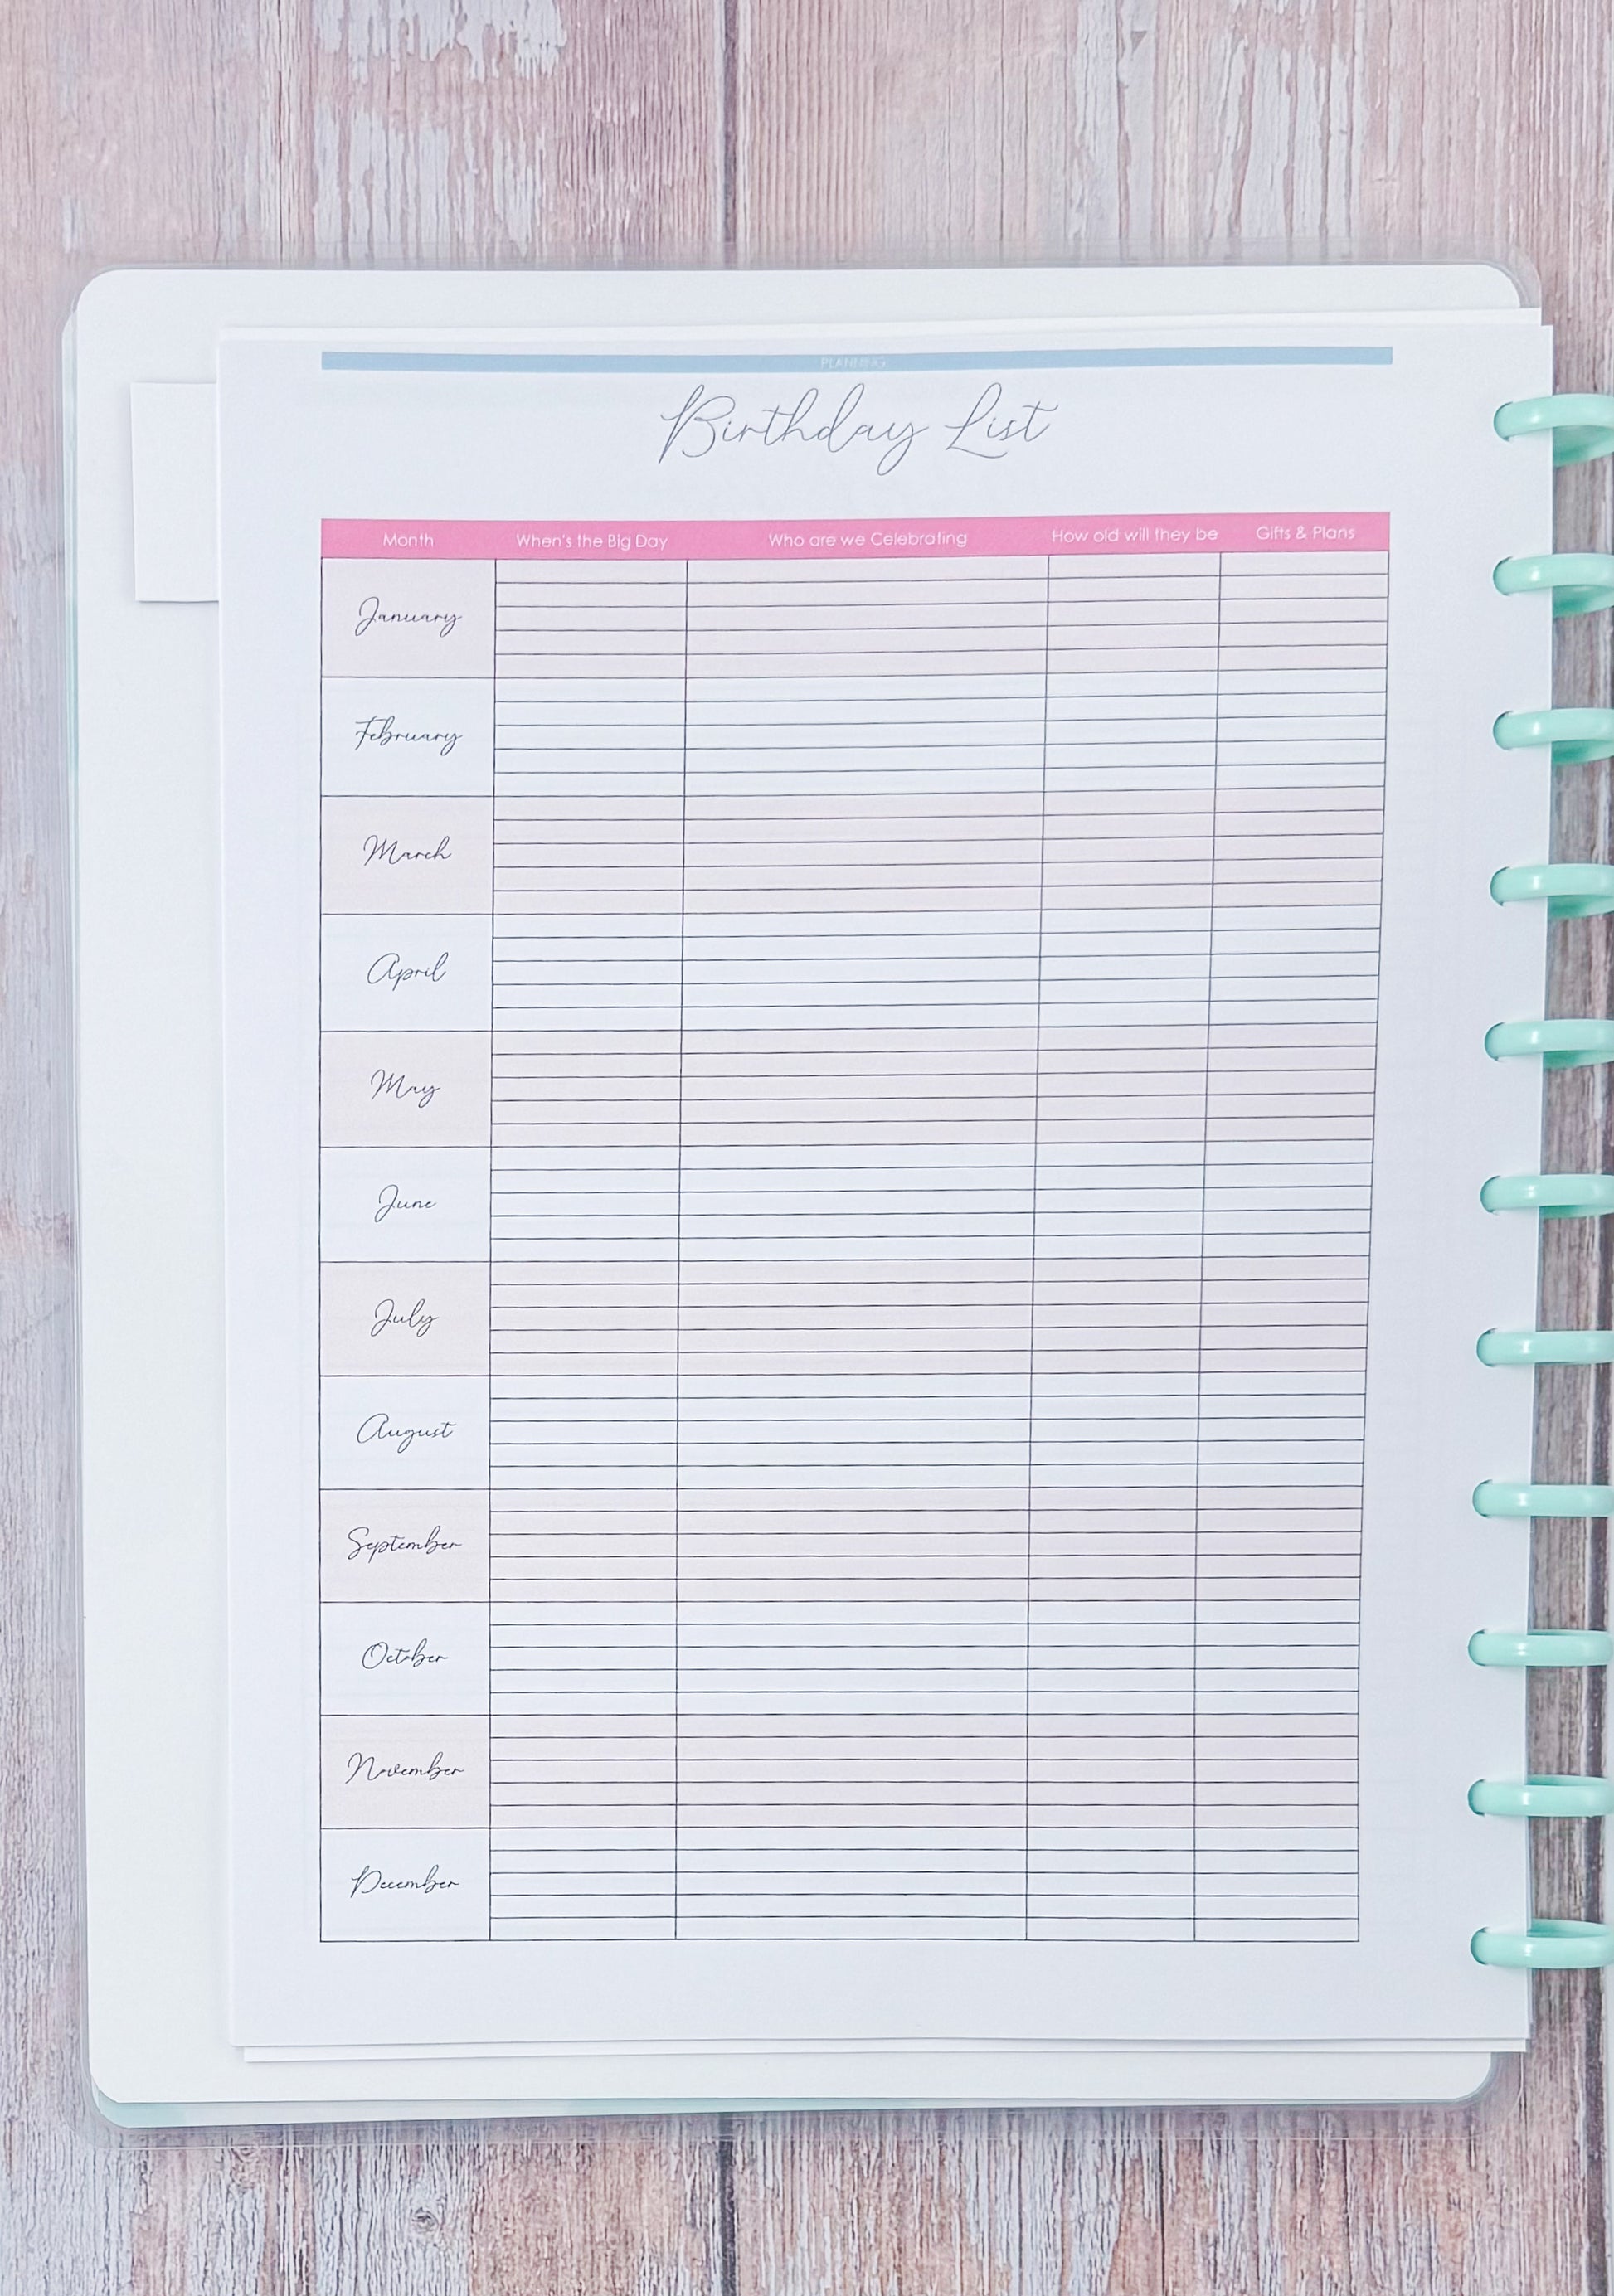 PLANNING
Birthday List
Month When's the Big Day Who are we Celebrating How old will they be Gifts & Plans
January
February
March
April
May
June
July
August
September
October
November
December